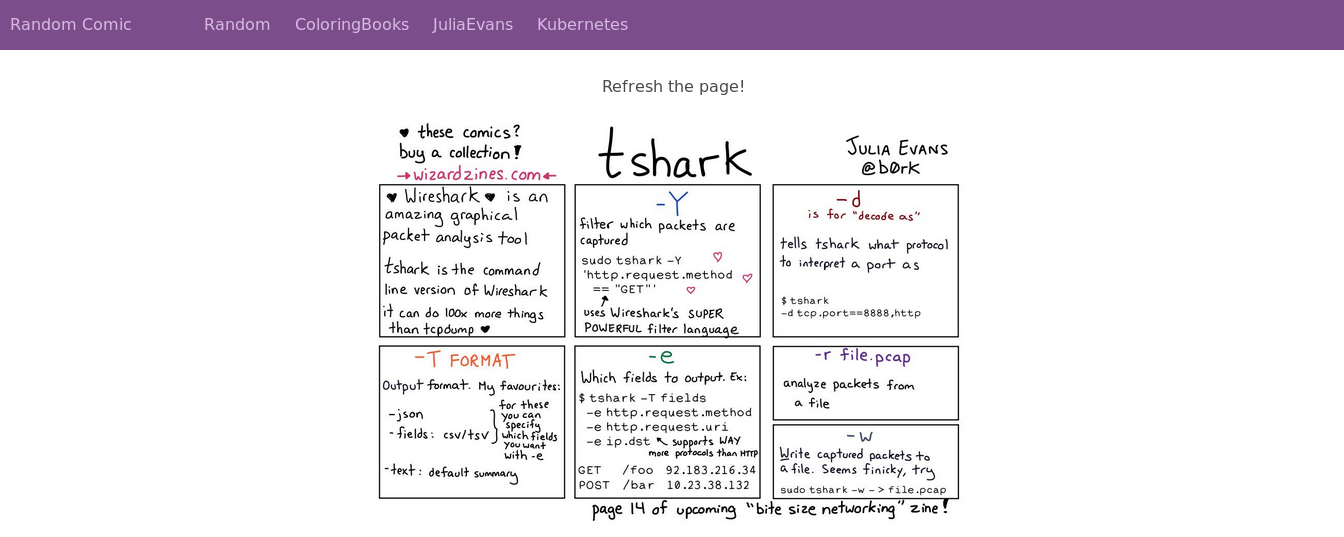 Random Comic Random ColoringBooks JuliaEvans Kubernetes
Refresh the page!
♥ these comics?
buy a collection!
→wizardzines.com←
tshark
JULIA EVANS
@b0rk
♥ Wireshark ♥ is an
amazing graphical
packet analysis tool
tshark is the command
line version of Wireshark
it can do 100x more things
than tcpdump ♥
-Y
filter which packets are
captured
sudo tshark -Y
'http.request.method
== "GET"'
uses Wireshark's SUPER
POWERFUL filter language
-d
is for "decode as"
tells tshark what protocol
to interpret a port as
$ tshark
-d tcp.port==8888,http
-T FORMAT
Output format. My favourites:
-json
-fields: csv/tsv
for these
you can
specify
which fields
you want
with -e
-text: default summary
-e
Which fields to output. Ex:
$ tshark -T fields
-e http.request.method
-e http.request.uri
-e ip.dst ↖ supports WAY
more protocols than HTTP
GET /foo 92.183.216.34
POST /bar 10.23.38.132
-r file.pcap
analyze packets from
a file
-w
Write captured packets to
a file. Seems finicky, try
sudo tshark -w - > file.pcap
page 14 of upcoming "bite size networking" zine!